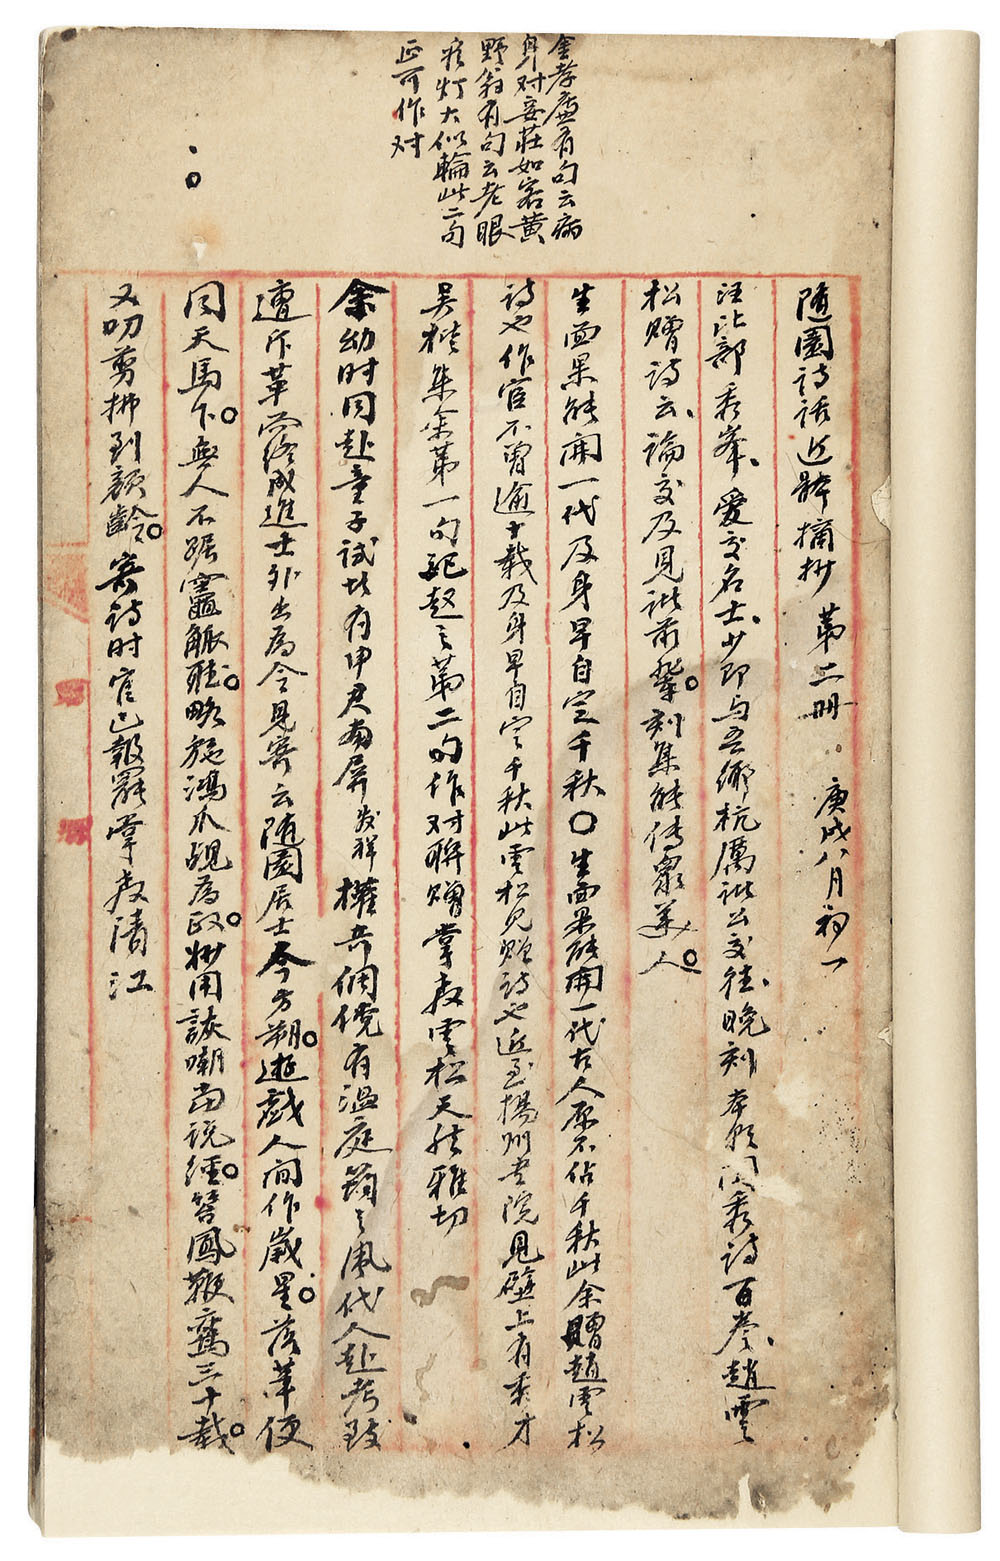 金孝廉有句云病
身对妾莊如客黄
野翁有句云老眼
疾灯大似輪此二句
正可作对
随園詩話近體摘抄 第二冊 庚戌八月初一
汪比部秀峯、愛交名士、少即与吾鄉杭厲諸公交往、晚刻本朝閨秀詩百卷、趙雲
松贈詩云、論交及見諸前輩○刻集能傳衆美人○
生面果能開一代及身早自定千秋○生面果能開一代古人原不佔千秋此余贈趙雲松
詩也作官不曾逾十載及身早自定千秋此雲松見贈詩也近至楊州書院見壁上有秀才
吴楷集余第一句配趙之第二句作对聯贈掌教雲松天然雅切
余幼时同赴童子試者有申君南屏发祥權奇倜儻有温庭筠之風代人赴考致
遭斥革而终成進士外出為令見寄云随園居士今方朔○遊戲人间作歲星○落筆便
同天馬下○無人不踞竈觚聽○略施鴻爪覘為政○妙用詼嘲当说經○笞鳳鞭鸞三十載○
又叨剪拂到頹齡○寄詩时官已報罷掌教清江